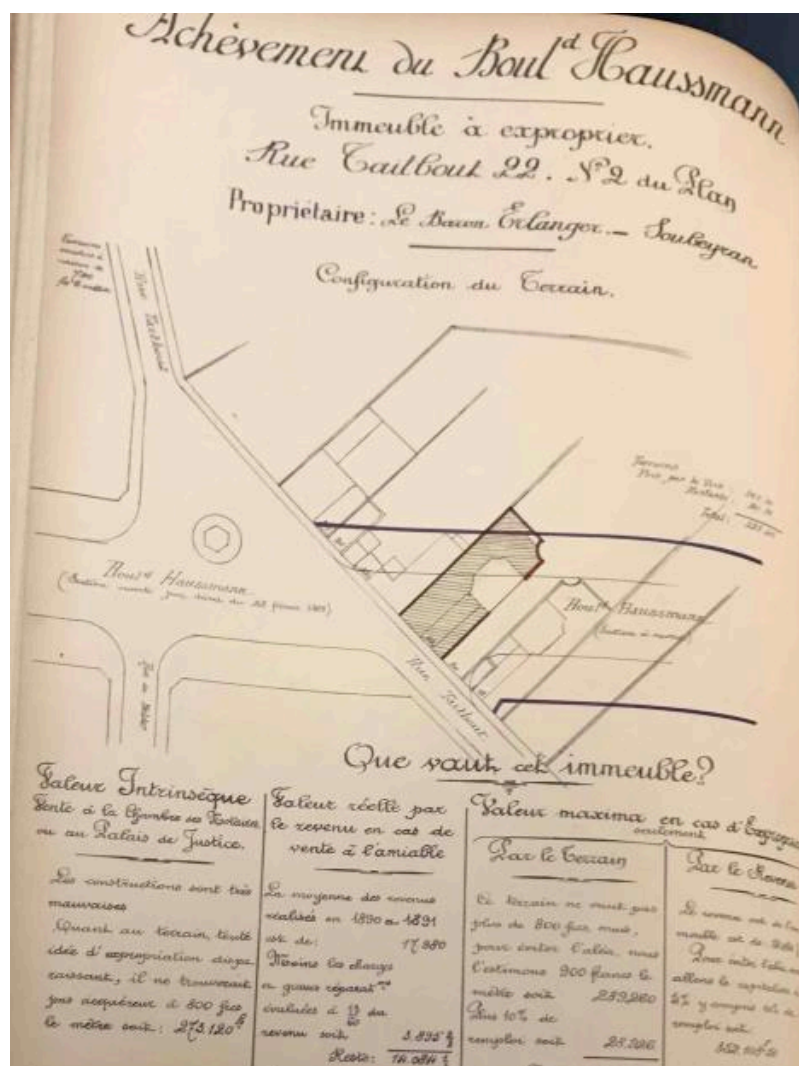 Achèvement du Boul.d Haussmann
Immeuble à exproprier.
Rue Taitbout 22. No 2 du Plan
Propriétaire: Le Baron Erlanger. _ Soubeyran
Configuration du Terrain.
Rue Taitbout
Terrains
Total:
Boul.d Haussmann
Boul.d Haussmann
Rue Taitbout
Rue du Helder
Que vaut cet immeuble?
Valeur Intrinsèque
Vente à la Chambre des Notaires
ou au Palais de Justice.
Les constructions sont très
mauvaises
Quant au terrain, toute
idée d'expropriation dispa-
raissant, il ne trouverait
pas acquéreur à 800 frcs
le mètre soit: 273.120 f
Valeur réelle par
le revenu en cas de
vente à l'amiable
La moyenne des revenus
réalisés en 1890 et 1891
est de: 17.980
Moins les charges
et grosses réparat.ons
évaluées à
revenu soit
Reste:
Valeur maxima en cas d'Exprop
seulement
Par le Terrain
Ce terrain ne vaut pas
plus de 800 frcs mais,
pour éviter l'aléa, nous
l'estimons 900 francs le
mètre soit
Plus 10% de
remploi soit
Par le Revenu
Le revenu
meuble est de
Pour éviter
allons le capitaliser
y compris
remploi soit